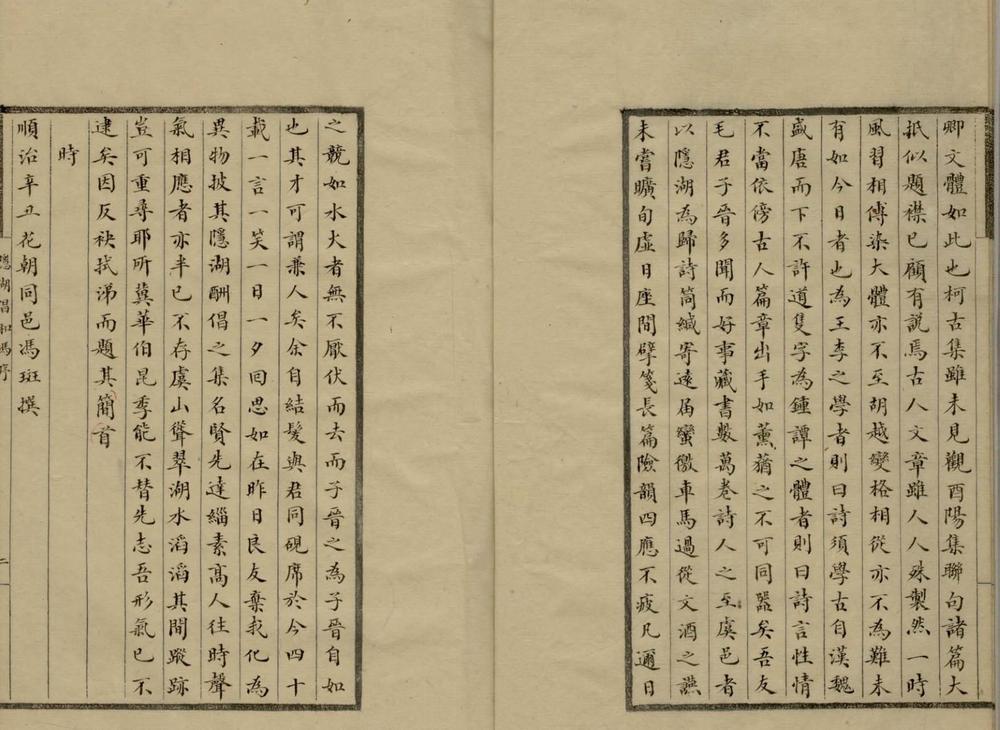 卿文體如此也柯古集雖未見觀酉陽集聯句諸篇大
抵似題襟已顧有説焉古人文章雖人人殊製然一時
風習相傳染大體亦不至胡越變格相從亦不為難未
有如今日者也為王李之學者則曰詩須學古自漢魏
盛唐而下不許道隻字為鍾譚之體者則曰詩言性情
不當依傍古人篇章出手如薰蕕之不可同器矣吾友
毛君子晉多聞而好事藏書數萬卷詩人之至虞邑者
以隱湖為歸詩筒緘寄遠届蠻徼車馬過從文酒之讌
未嘗曠旬虛日座間擘箋長篇險韻四應不疲凡邇日
之競如水火者無不厭伏而去而子晉之為子晉自如
也其才可謂兼人矣余自結髮與君同硯席於今四十
載一言一笑一日一夕回思如在昨日良友棄我化為
異物披其隱湖酬倡之集名賢先達緇素高人往時聲
氣相應者亦半已不存虞山聳翠湖水滔滔其間蹤跡
豈可重尋耶所冀華伯昆季能不替先志吾形氣已不
逮矣因反袂拭涕而題其簡首
時
順治辛丑花朝同邑馮班撰
隱湖倡和馮序
二